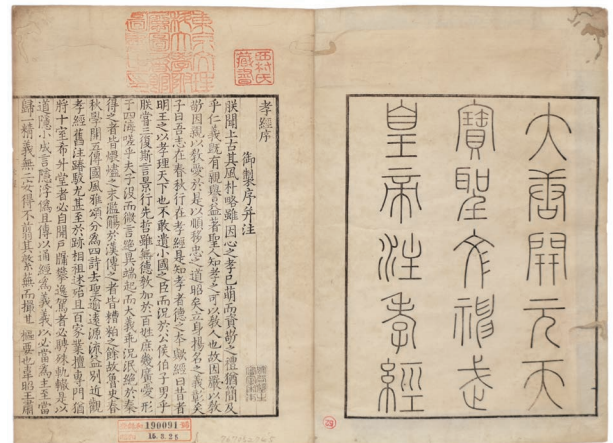 大唐開元天
寶聖文神武
皇帝注孝經
孝經序
御製序并注
朕聞上古其風朴略雖因心之孝已萌而資敬之禮猶簡及
乎仁義既有親譽益著聖人知孝之可以教人也故因嚴以教
敬因親以教愛於是以順移忠之道昭矣立身揚名之義彰矣
子曰吾志在春秋行在孝經是知孝者德之本歟經曰昔者
明王之以孝理天下也不敢遺小國之臣而況於公侯伯子男乎
朕嘗三復斯言景行先哲雖無德教加於百姓庶幾廣愛形
于四海嗟乎夫子沒而微言絕異端起而大義乖況泯絕於秦
得之者皆煨燼之末濫觴於漢傳之者皆糟粕之餘故魯史春
秋學開五傳國風雅頌分為四詩去聖逾遠源流益別近觀
孝經舊注踳駮尤甚至於跡相祖述殆且百家業擅專門猶
將十室希升堂者必自開戶牖攀逸駕者必騁殊軌轍是以
道隱小成言隱浮偽且傳以通經為義義以必當為主至當
歸一精義無二安得不翦其繁蕪而撮其樞要也韋昭王肅
190091